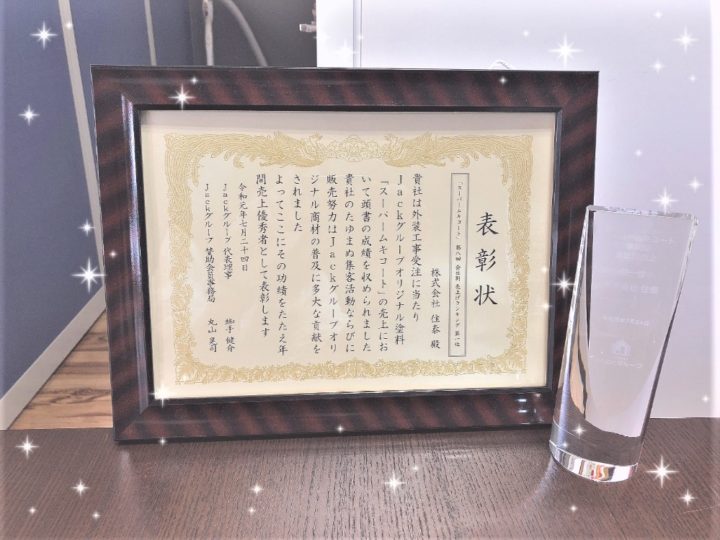 表彰状
「スーパームキコート」第八回 会社別 売上げランキング 第一位
株式会社 住泰 殿
貴社は外装工事受注に当たり
Jackグループオリジナル塗料
「スーパームキコート」の売上にお
いて頭書の成績を収められました
貴社のたゆまぬ集客活動ならびに
販売努力はJackグループオリ
ジナル商材の普及に多大な貢献を
されました
よってここにその功績をたたえ年
間売上優秀者として表彰します
令和元年七月二十四日
Jackグループ 代表理事 健介
Jackグループ 賛助会員事務局 丸山 良司